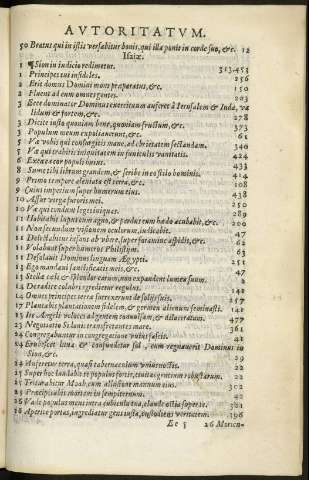 AVTORITATVM.
50 Beatus qui in istis versabitur bonis, qui illa ponit in corde suo, &c. 12
Isaiæ.
1 ¶Sion in iudicio redimetur. 313.453
1 Principes tui infideles. 256
2 Erit domus Domini mons præparatus, &c. 50
2 Fluent ad eum omnes gentes. 203
3 Ecce dominator Dominus exercituum auferet à Ierusalem & Iuda, va
lidum & fortem, &c. 378
3 Dicite iusto quoniam bene, quoniam fructum, &c. 373
3 Populum meum expoliauerunt, &c. 361
5 Væ vobis qui consurgitis mane, ad ebrietatem sectandam. 340
5 Væ qui trahitis iniquitatem in funiculis vanitatis. 424
6 Excæca cor populi huius. 433
8 Sume tibi librum grandem, & scribe in eo stilo hominis. 414
9 Primo tempore alleuiata est terra, &c. 108
9 Cuius imperium super humerum eius. 438
10 Assur virga furoris mei. 250
10 Væ qui condunt leges iniquas. 289
11 Habitabit lupus cum agno, & pardus cum hædo accubabit, &c. 47
11 Non secundum visionem oculorum iudicabit. 47
11 Delectabitur infans ab vbere, super foramine aspidis, &c. 63
11 Volabunt super humeros Philistijm. 63
11 Desolauit Dominus linguam Aegypti. 251
13 Ego mandaui sanctificatis meis, &c. 47
13 Stellæ cæli & splendor earum, non expandent lumen suum. 2
14 De radice colubri egredietur regulus.
14 Omnes principes terræ surrexerunt de solijs suis. 251
17 Plantabis plantationem fidelem, & germen alienum seminabis. 157
18 Ite Angeli veloces ad gentem conuulsam, & dilaceratam. 141
23 Negotiatio Sidonis transfretantes mare. 377
24 Congregabuntur in congregatione vnius fascis. 61
24 Erubescet luna, & confundetur sol, cum regnauerit Dominus in
Sion, &c. 49
24 Auferetur terra, quasi tabernaculum vnius noctis. 22
25 Super hoc laudabit te populus fortis, ciuitas gentium robustarum. 22
25 Triturabitur Moab, cum 42
25 Præcipitabit mortem in sempiternum. 31
26 Vade populus meus intra cubicula tua, claude ostia super te. 301
26 Aperite portas, ingrediatur gens iusta, custodiens veritatem. 196
Ee 3 26 Mortui